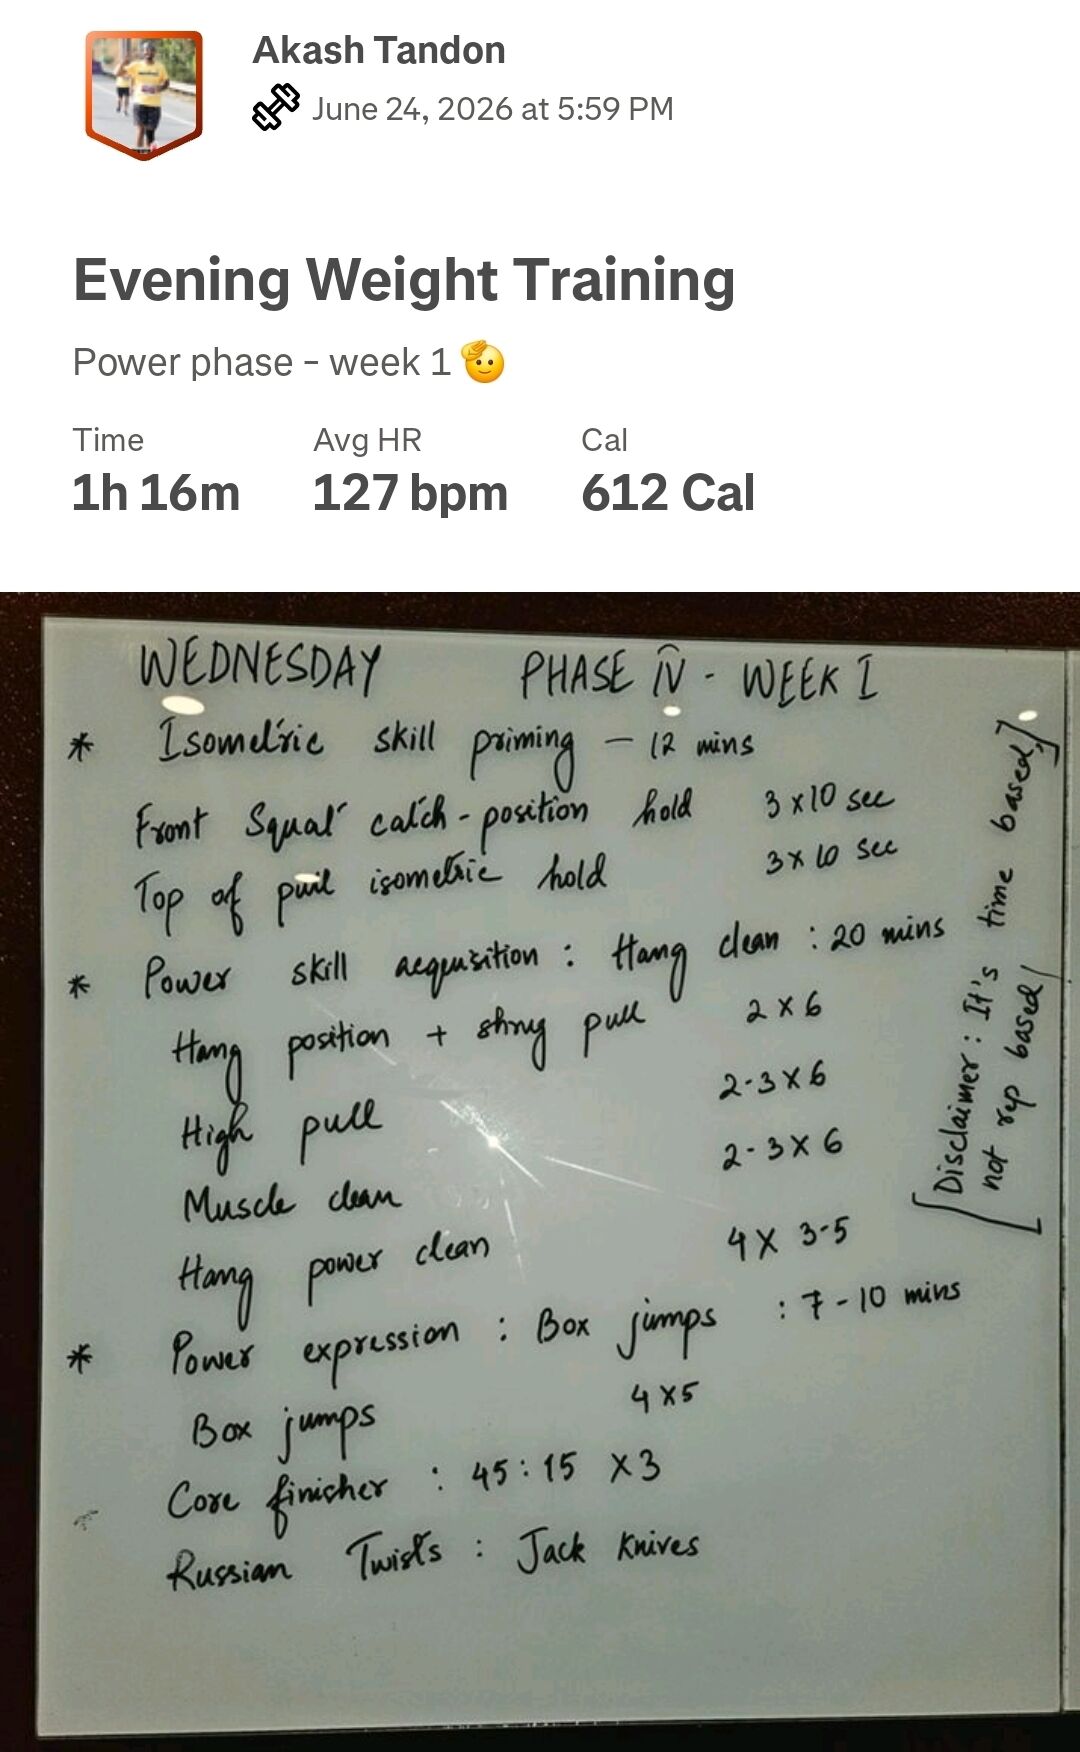 Akash Tandon
June 24, 2026 at 5:59 PM
Evening Weight Training
Power phase - week 1
Time Avg HR Cal
1h 16m 127 bpm 612 Cal
WEDNESDAY PHASE IV - WEEK I
* Isometric skill priming - 12 mins
Front Squat catch-position hold 3 x 10 sec
Top of pull isometric hold 3 x 10 sec
* Power skill acquisition : Hang clean : 20 mins
Hang position + shrug pull 2 x 6
High pull 2-3 x 6
Muscle clean 2-3 x 6
Hang power clean 4 x 3-5
* Power expression : Box jumps : 7-10 mins
Box jumps 4 x 5
Core finisher : 45:15 x 3
Russian Twists : Jack Knives
[Disclaimer: It's time based,
not rep based]